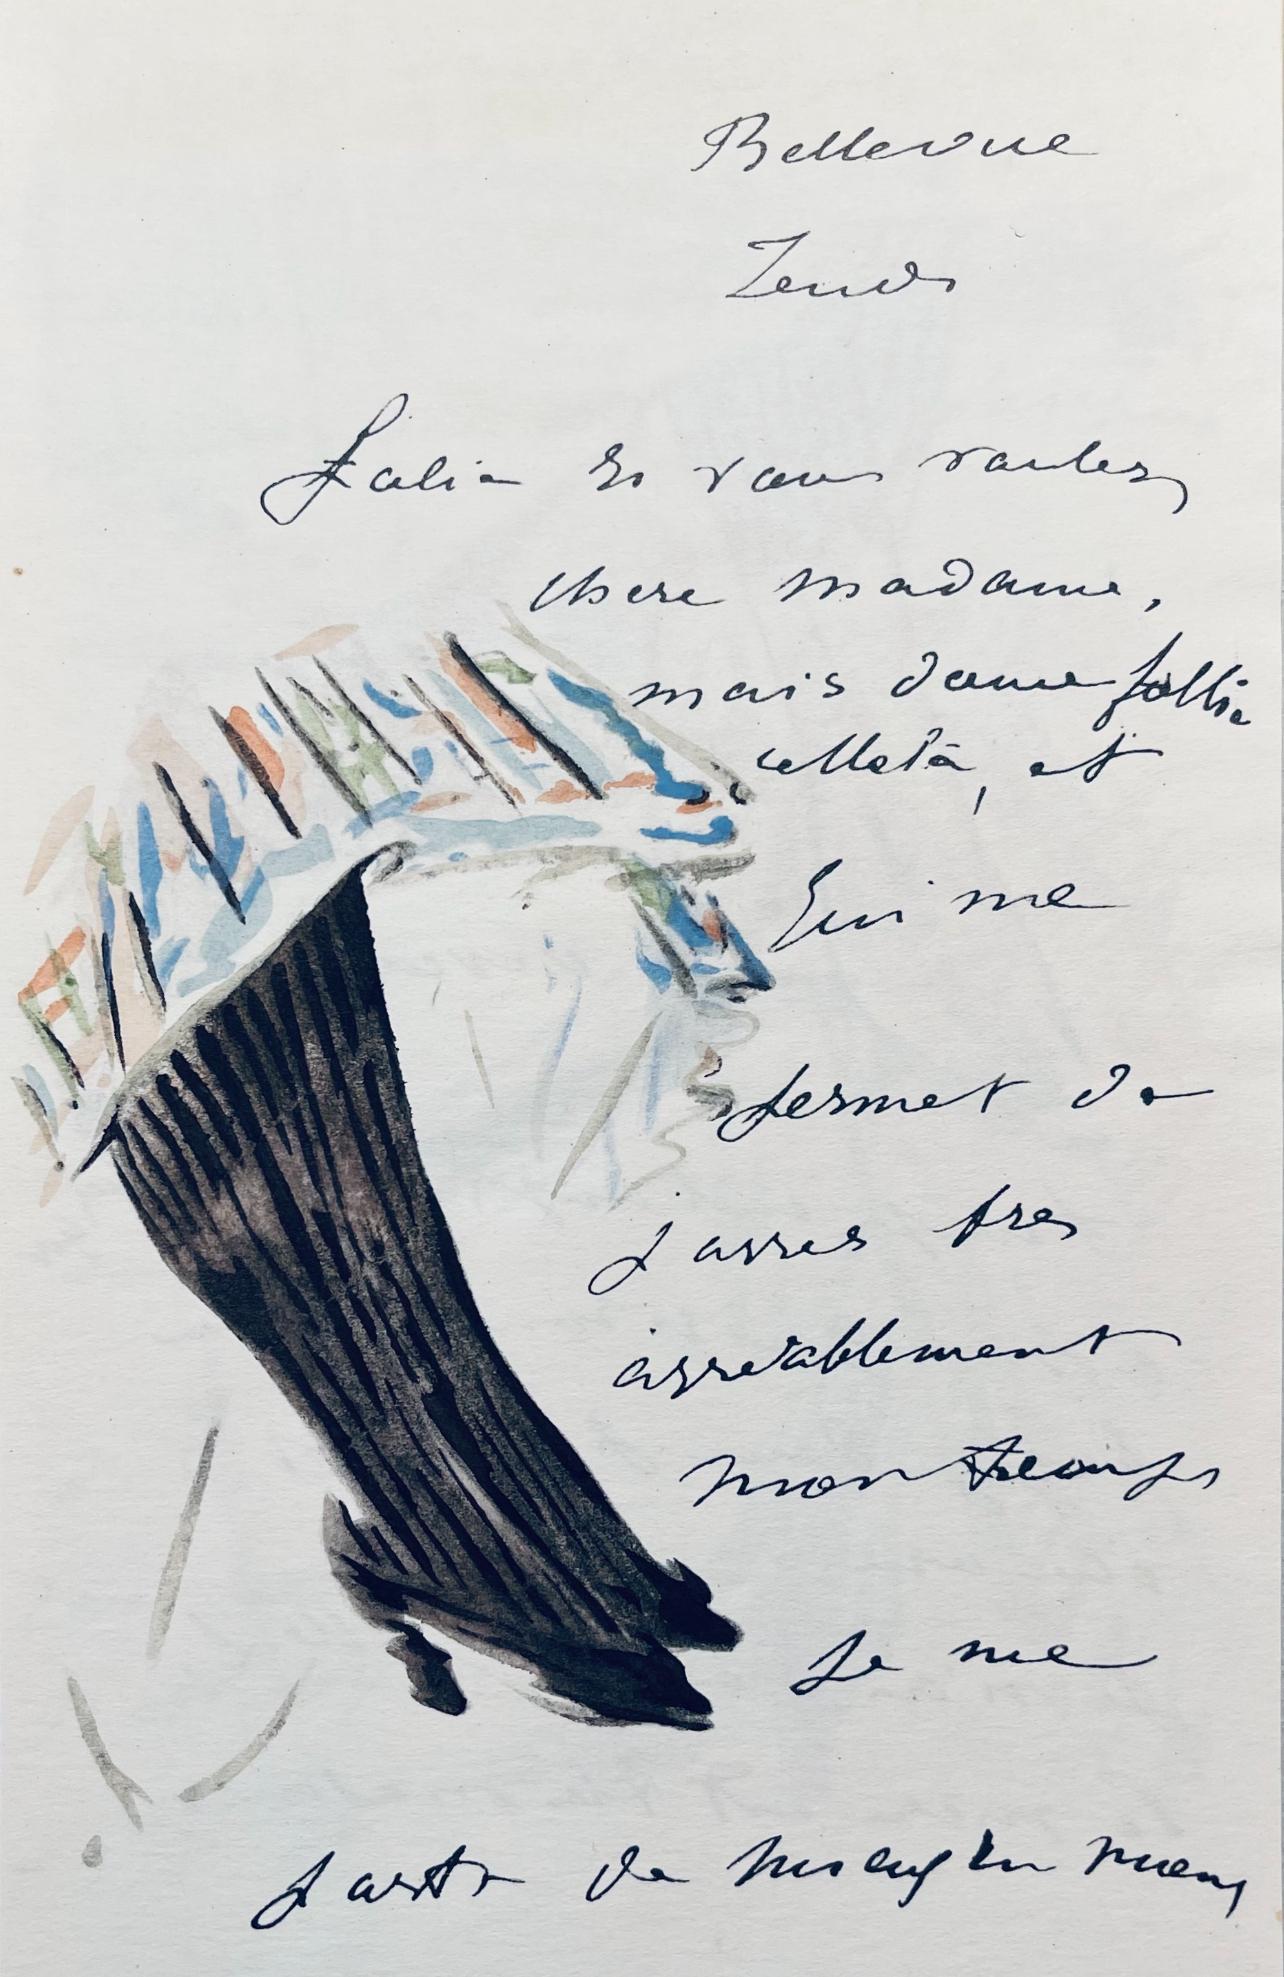 Bellevue
Jeudi
Folie si vous voulez,
chere madame,
mais douce folie
celle là, et
qui me
permet de
passer tres
agreablement
mon temps
Je me
porte de mieux en mieux